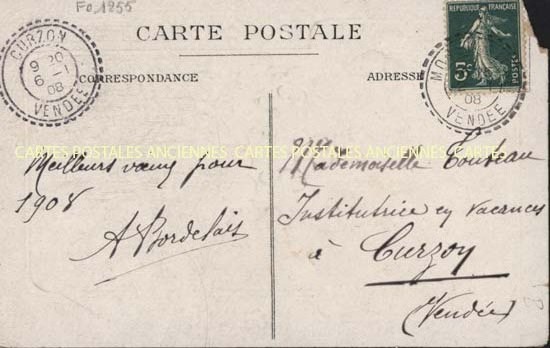 Fo 1855
CARTE POSTALE
CORRESPONDANCE
ADRESSE
CURZON
9 20
6 - 1
08
VENDEE
REPUBLIQUE FRANÇAISE
5c
POSTES
MO
08
VENDEE
CARTES POSTALES ANCIENNES CARTES POSTALES ANCIENNES CARTES
Meilleurs vœux pour
1908
A Bordelais
Mademoiselle
Institutrice en vacances
à Curzon
(Vendée)